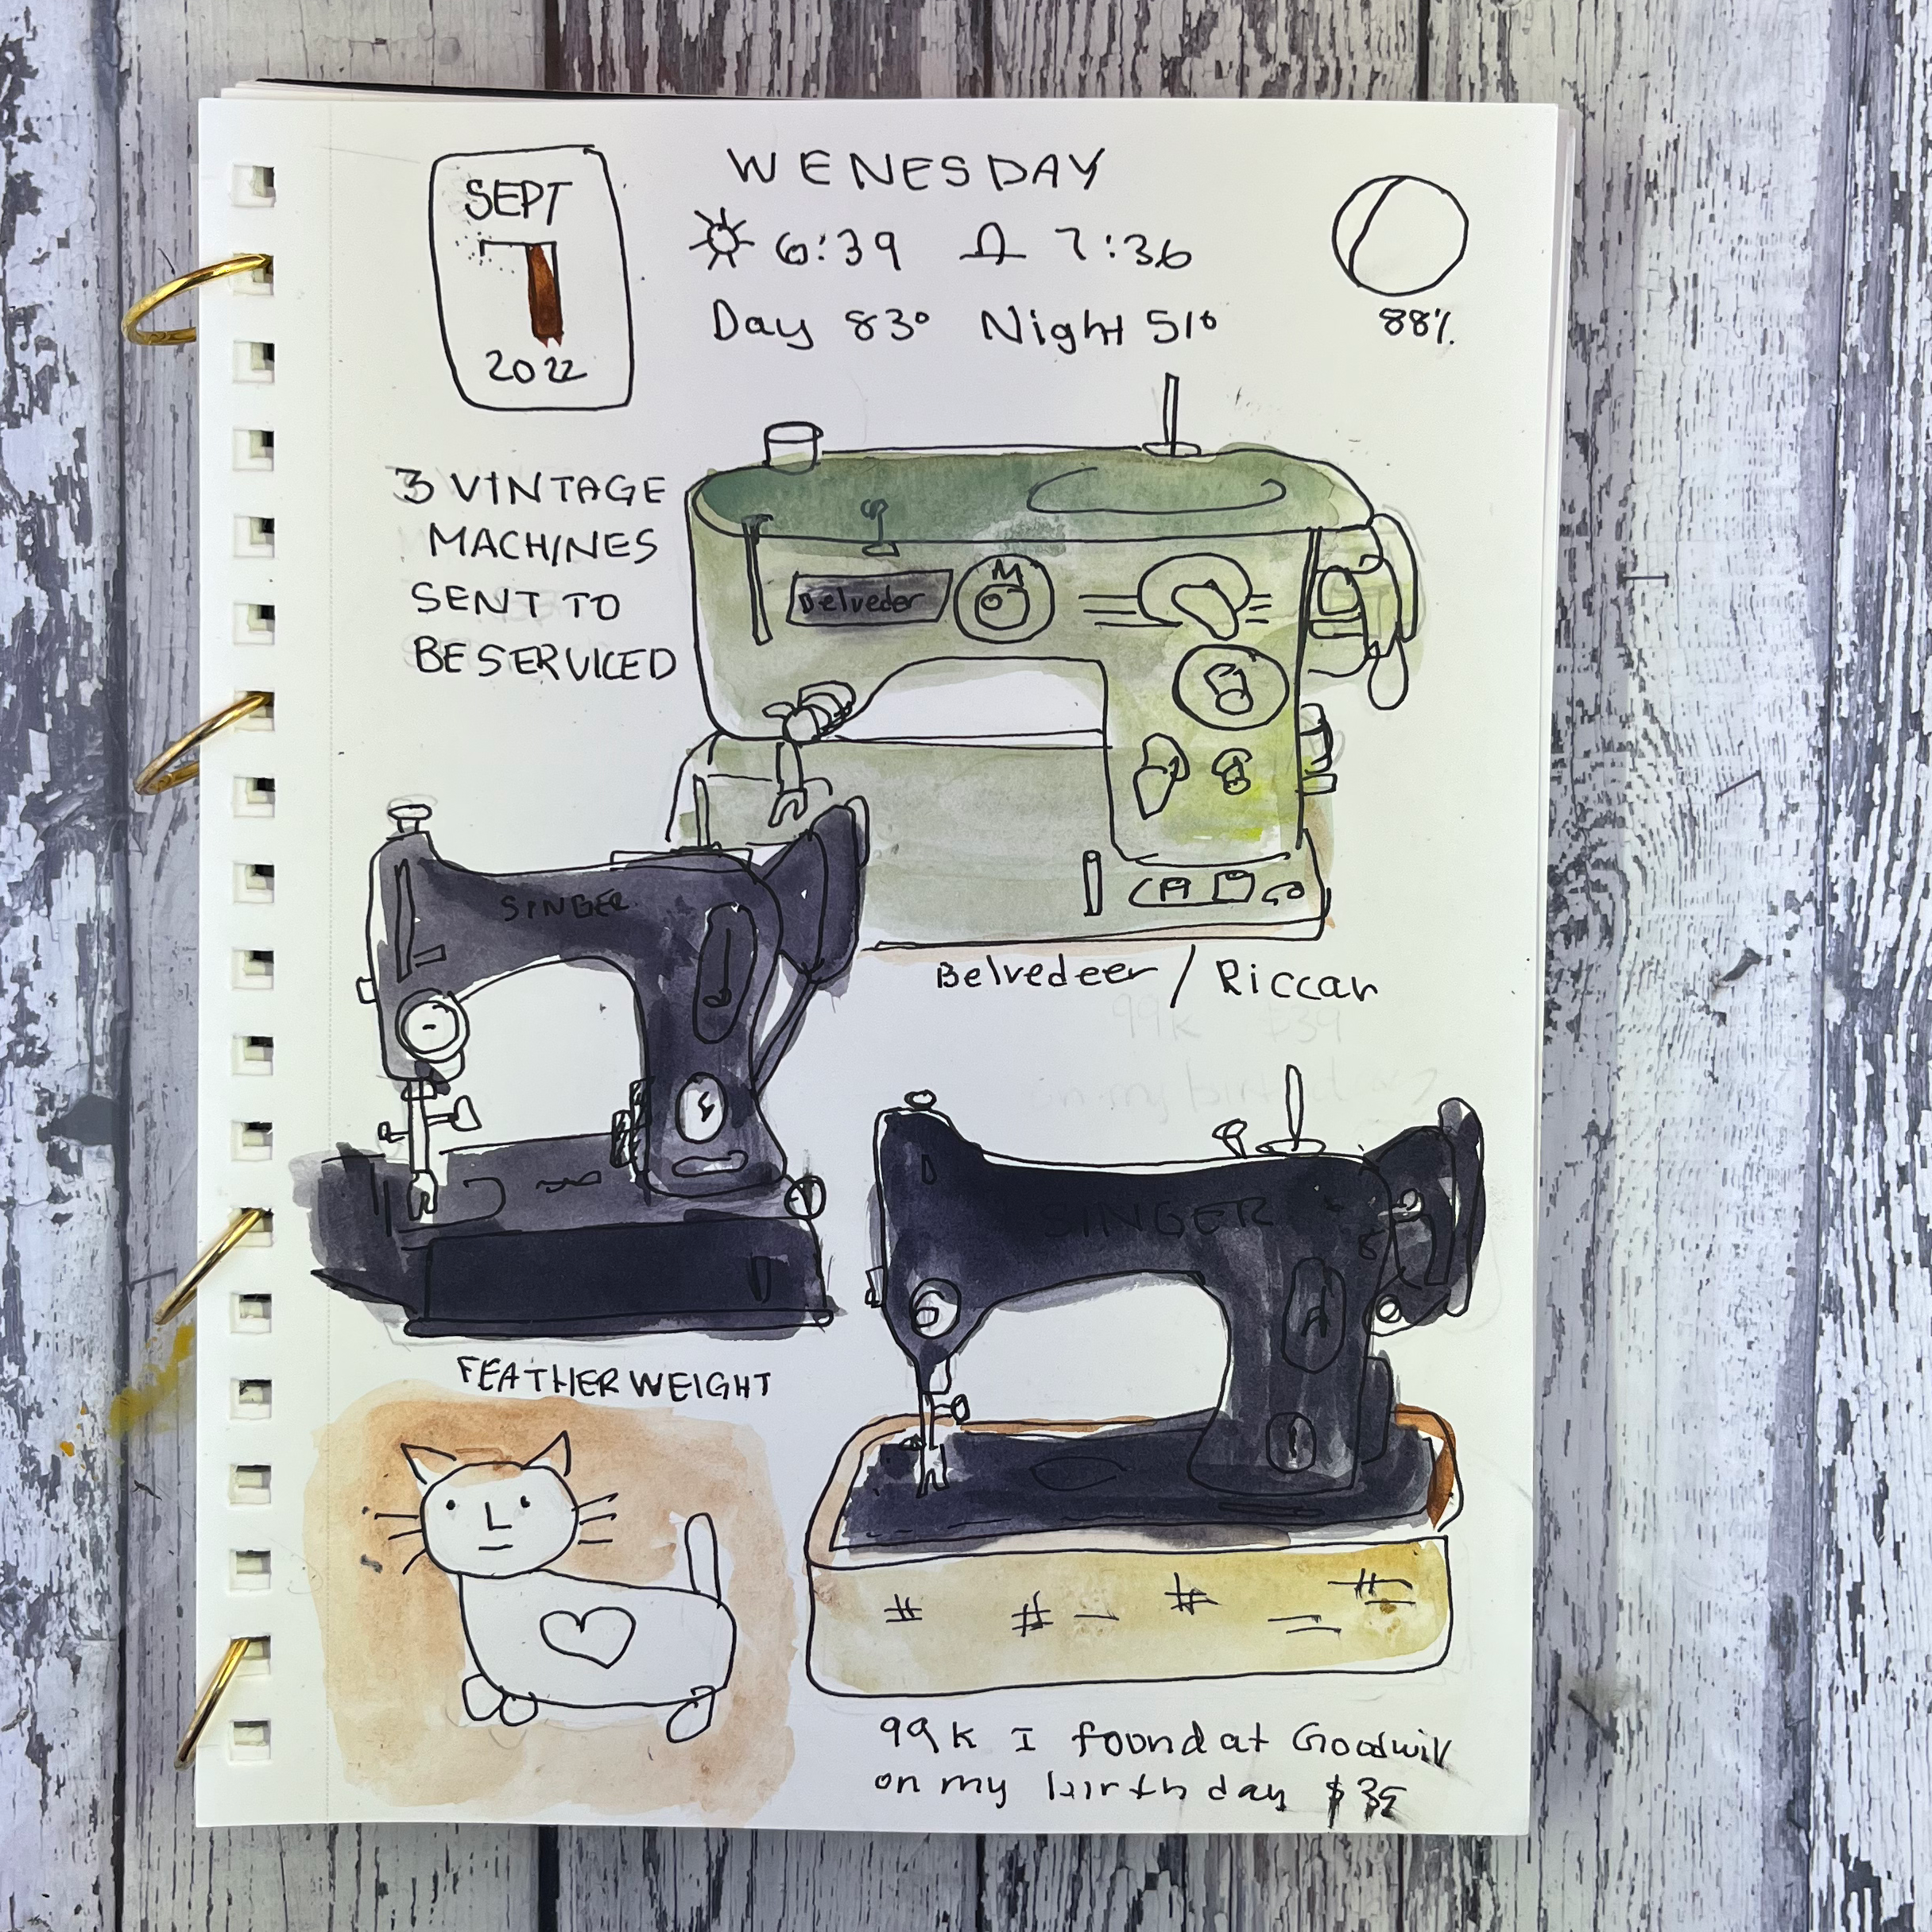 SEPT
7
2022
WENESDAY
6:39 7:36
Day 83° Night 51°
88%
3 VINTAGE
MACHINES
SENT TO
BE SERVICED
Belveder
Belvedeer / Riccar
SINGER
FEATHERWEIGHT
SINGER
99k I found at Goodwill
on my birthday